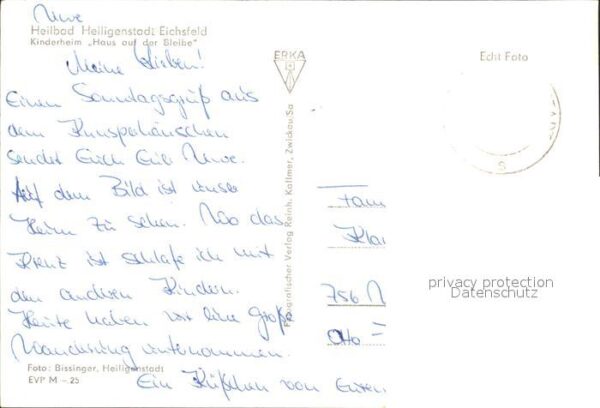 Uwe
Heilbad Heiligenstadt Eichsfeld
Kinderheim „Haus auf der Bleibe"
Meine Lieben!
Einen Sonntagsgruß aus
dem Knusperhäuschen
sendet Euch Eure Uwe.
Auf dem Bild ist unser
Heim zu sehen. Wo das
Kreuz ist schlafe ich mit
den anderen Kindern.
Heute haben wir eine große
Wanderung unternommen.
Ein Küßchen von Euren
Foto: Bissinger, Heiligenstadt
EVP M – 25
ERKA
Fotografischer Verlag Reinh. Kallmer, Zwickau/Sa
Echt Foto
S
Fam
Kla
756
Otto
privacy protection
Datenschutz